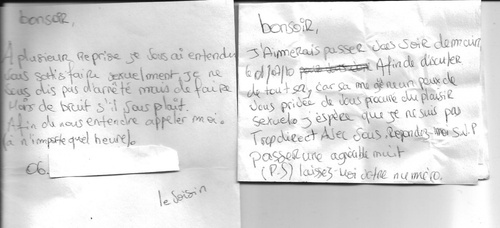 bonsoir,
A plusieur Reprise je vous ai entendu
vous satisfaire sexuelment, je ne
vous dis pas d'arrêté mais de faire
mois de bruit s'il vous plait.
Afin de nous entendre appeler moi.
(à n'importe quel heure).
06.
le voisin
bonsoir,
J'Aimerais passer vous voir demain,
le Afin de discuter
de tout sa, car sa me gêne un peux de
vous privée de vous procuré du plaisir
sexuelle j'éspère que je ne suis pas
Trop direct Avec vous. Repondez-moi S.V.P
passer une agréable nuit
(P.S) laissez-moi votre numéro.